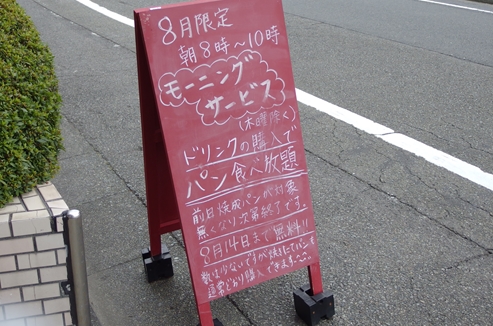 8月限定
朝8時〜10時
モーニング
サービス
(木曜除く)
ドリンクの購入で
パン食べ放題
前日焼成パンが対象
無くなり次第終了です。
8月14日まで無料!!
数は少ないですが焼きたてパンも
通常どおり購入できます